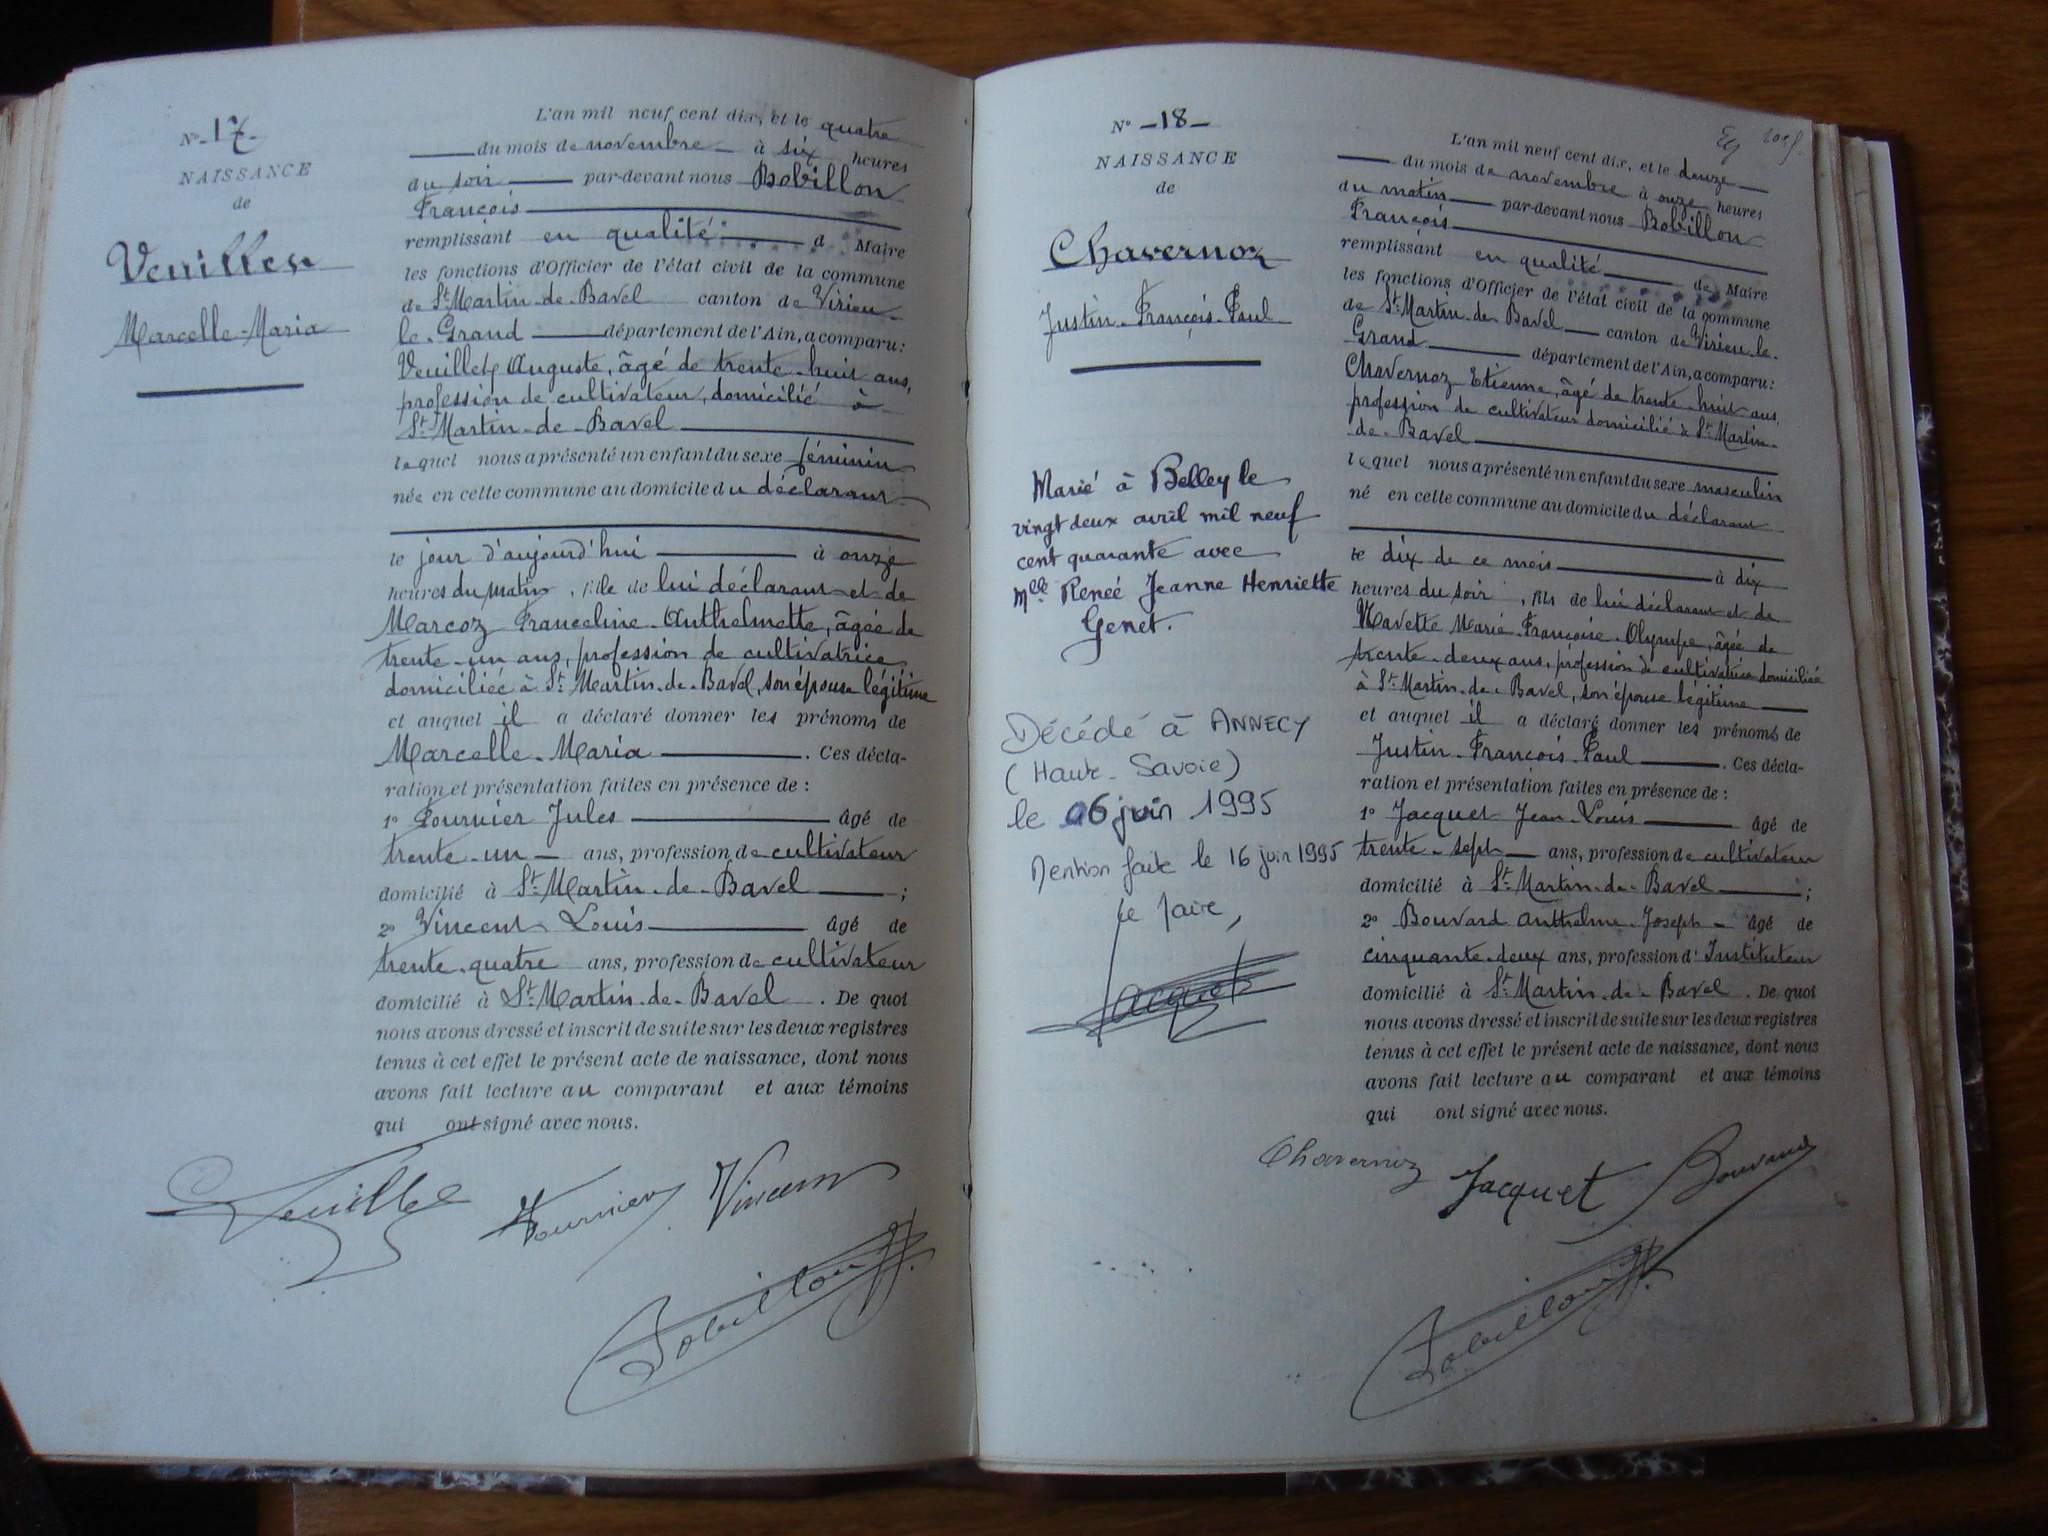 N° - 17 -
NAISSANCE
de
Veuillet
Marcelle-Maria
L'an mil neuf cent dix, et le quatre
du mois de novembre à six heures
du soir par-devant nous Bobillon
François
remplissant en qualité d Maire
les fonctions d'Officier de l'état civil de la commune
de St Martin-de-Bavel canton de Virieu-
le-Grand département de l'Ain, a comparu:
Veuillet Auguste, âgé de trente-huit ans,
profession de cultivateur, domicilié à
St Martin-de-Bavel
lequel nous a présenté un enfant du sexe féminin
née en cette commune au domicile du déclarant
le jour d'aujourd'hui à onze
heures du matin, fille de lui déclarant et de
Marcoz Franceline-Anthelmette, âgée de
trente-un ans, profession de cultivatrice
domiciliée à St Martin-de-Bavel, son épouse légitime
et auquel il a déclaré donner les prénoms de
Marcelle-Maria . Ces décla-
ration et présentation faites en présence de :
1° Fournier Jules âgé de
trente-un ans, profession de cultivateur
domicilié à St Martin-de-Bavel ;
2° Vincent Louis âgé de
trente-quatre ans, profession de cultivateur
domicilié à St Martin-de-Bavel . De quoi
nous avons dressé et inscrit de suite sur les deux registres
tenus à cet effet le présent acte de naissance, dont nous
avons fait lecture au comparant et aux témoins
qui ont signé avec nous.
Veuillet Fournier Vincent
Bobillon
N° - 18 -
NAISSANCE
de
Chavernoz
Justin-François-Paul
Marié à Belley le
vingt deux avril mil neuf
cent quarante avec
Mlle Renée Jeanne Henriette
Genet.
Décédé à ANNECY
(Haute-Savoie)
le 06 juin 1995
Mention faite le 16 juin 1995
le Maire,
Jacquet
L'an mil neuf cent dix, et le douze
du mois de novembre à onze heures
du matin par-devant nous Bobillon
François
remplissant en qualité de Maire
les fonctions d'Officier de l'état civil de la commune
de St Martin-de-Bavel canton de Virieu-le-
Grand département de l'Ain, a comparu:
Chavernoz Etienne, âgé de trente-huit ans,
profession de cultivateur domicilié à St Martin-
de-Bavel
lequel nous a présenté un enfant du sexe masculin
né en cette commune au domicile du déclarant
le dix de ce mois à dix
heures du soir, fils de lui déclarant et de
Marie-Françoise-Olympe, âgée de
trente-deux ans, profession de cultivatrice domiciliée
à St Martin-de-Bavel, son épouse légitime
et auquel il a déclaré donner les prénoms de
Justin-François-Paul . Ces décla-
ration et présentation faites en présence de :
1° Jacquet Jean-Louis âgé de
trente-sept ans, profession de cultivateur
domicilié à St Martin-de-Bavel ;
2° Bouvard Anthelme-Joseph âgé de
cinquante-deux ans, profession d'Instituteur
domicilié à St Martin-de-Bavel . De quoi
nous avons dressé et inscrit de suite sur les deux registres
tenus à cet effet le présent acte de naissance, dont nous
avons fait lecture au comparant et aux témoins
qui ont signé avec nous.
Chavernoz Jacquet Bouvard
Bobillon